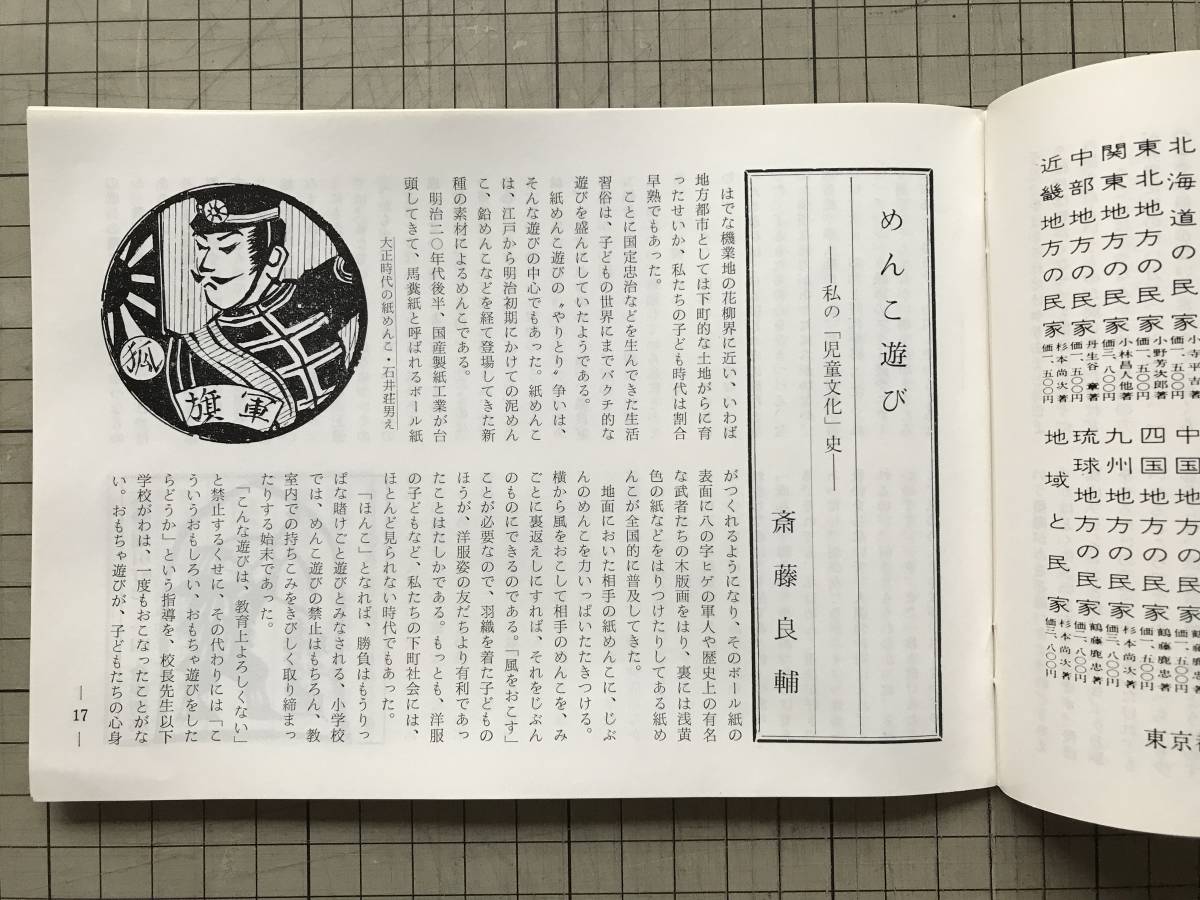 北海道の民家 小寺平吉著 価一、五〇〇円
東北地方の民家 小野芳次郎著 価一、五〇〇円
関東地方の民家 小林昌人他著 価三、八〇〇円
中部地方の民家 丹生谷章著 価一、五〇〇円
近畿地方の民家 杉本尚次著 価一、五〇〇円
中国地方の民家 鶴藤鹿忠著
四国地方の民家 鶴藤鹿忠著 価一、五〇〇円
九州地方の民家 杉本尚次著
琉球地方の民家 鶴藤鹿忠著
地域と民家 杉本尚次著 価三、八〇〇円
東京都
めんこ遊び
――私の「児童文化」史――
斎藤良輔
はでな機業地の花柳界に近い、いわば
地方都市としては下町的な土地がらに育
ったせいか、私たちの子ども時代は割合
早熟でもあった。
ことに国定忠治などを生んできた生活
習俗は、子どもの世界にまでバクチ的な
遊びを盛んにしていたようである。
紙めんこ遊びの〝やりとり〟争いは、
そんな遊びの中心でもあった。紙めんこ
は、江戸から明治初期にかけての泥めん
こ、鉛めんこなどを経て登場してきた新
種の素材によるめんこである。
明治二〇年代後半、国産製紙工業が台
頭してきて、馬糞紙と呼ばれるボール紙
大正時代の紙めんこ・石井荘男え
狐
軍旗
がつくれるようになり、そのボール紙の
表面に八の字ヒゲの軍人や歴史上の有名
な武者たちの木版画をはり、裏には浅黄
色の紙などをはりつけたりしてある紙め
んこが全国的に普及してきた。
地面においた相手の紙めんこに、じぶ
んのめんこを力いっぱいたたきつける。
横から風をおこして相手のめんこを、み
ごとに裏返えしにすれば、それをじぶん
のものにできるのである。「風をおこす」
ことが必要なので、羽織を着た子どもの
ほうが、洋服姿の友だちより有利であっ
たことはたしかである。もっとも、洋服
の子どもなど、私たちの下町社会には、
ほとんど見られない時代でもあった。
「ほんこ」となれば、勝負はもうりっ
ぱな賭けごと遊びとみなされる、小学校
では、めんこ遊びの禁止はもちろん、教
室内での持ちこみをきびしく取り締まっ
たりする始末であった。
「こんな遊びは、教育上よろしくない」
と禁止するくせに、その代わりには「こ
ういうおもしろい、おもちゃ遊びをした
らどうか」という指導を、校長先生以下
学校がわは、一度もおこなったことがな
い。おもちゃ遊びが、子どもたちの心身
―17―